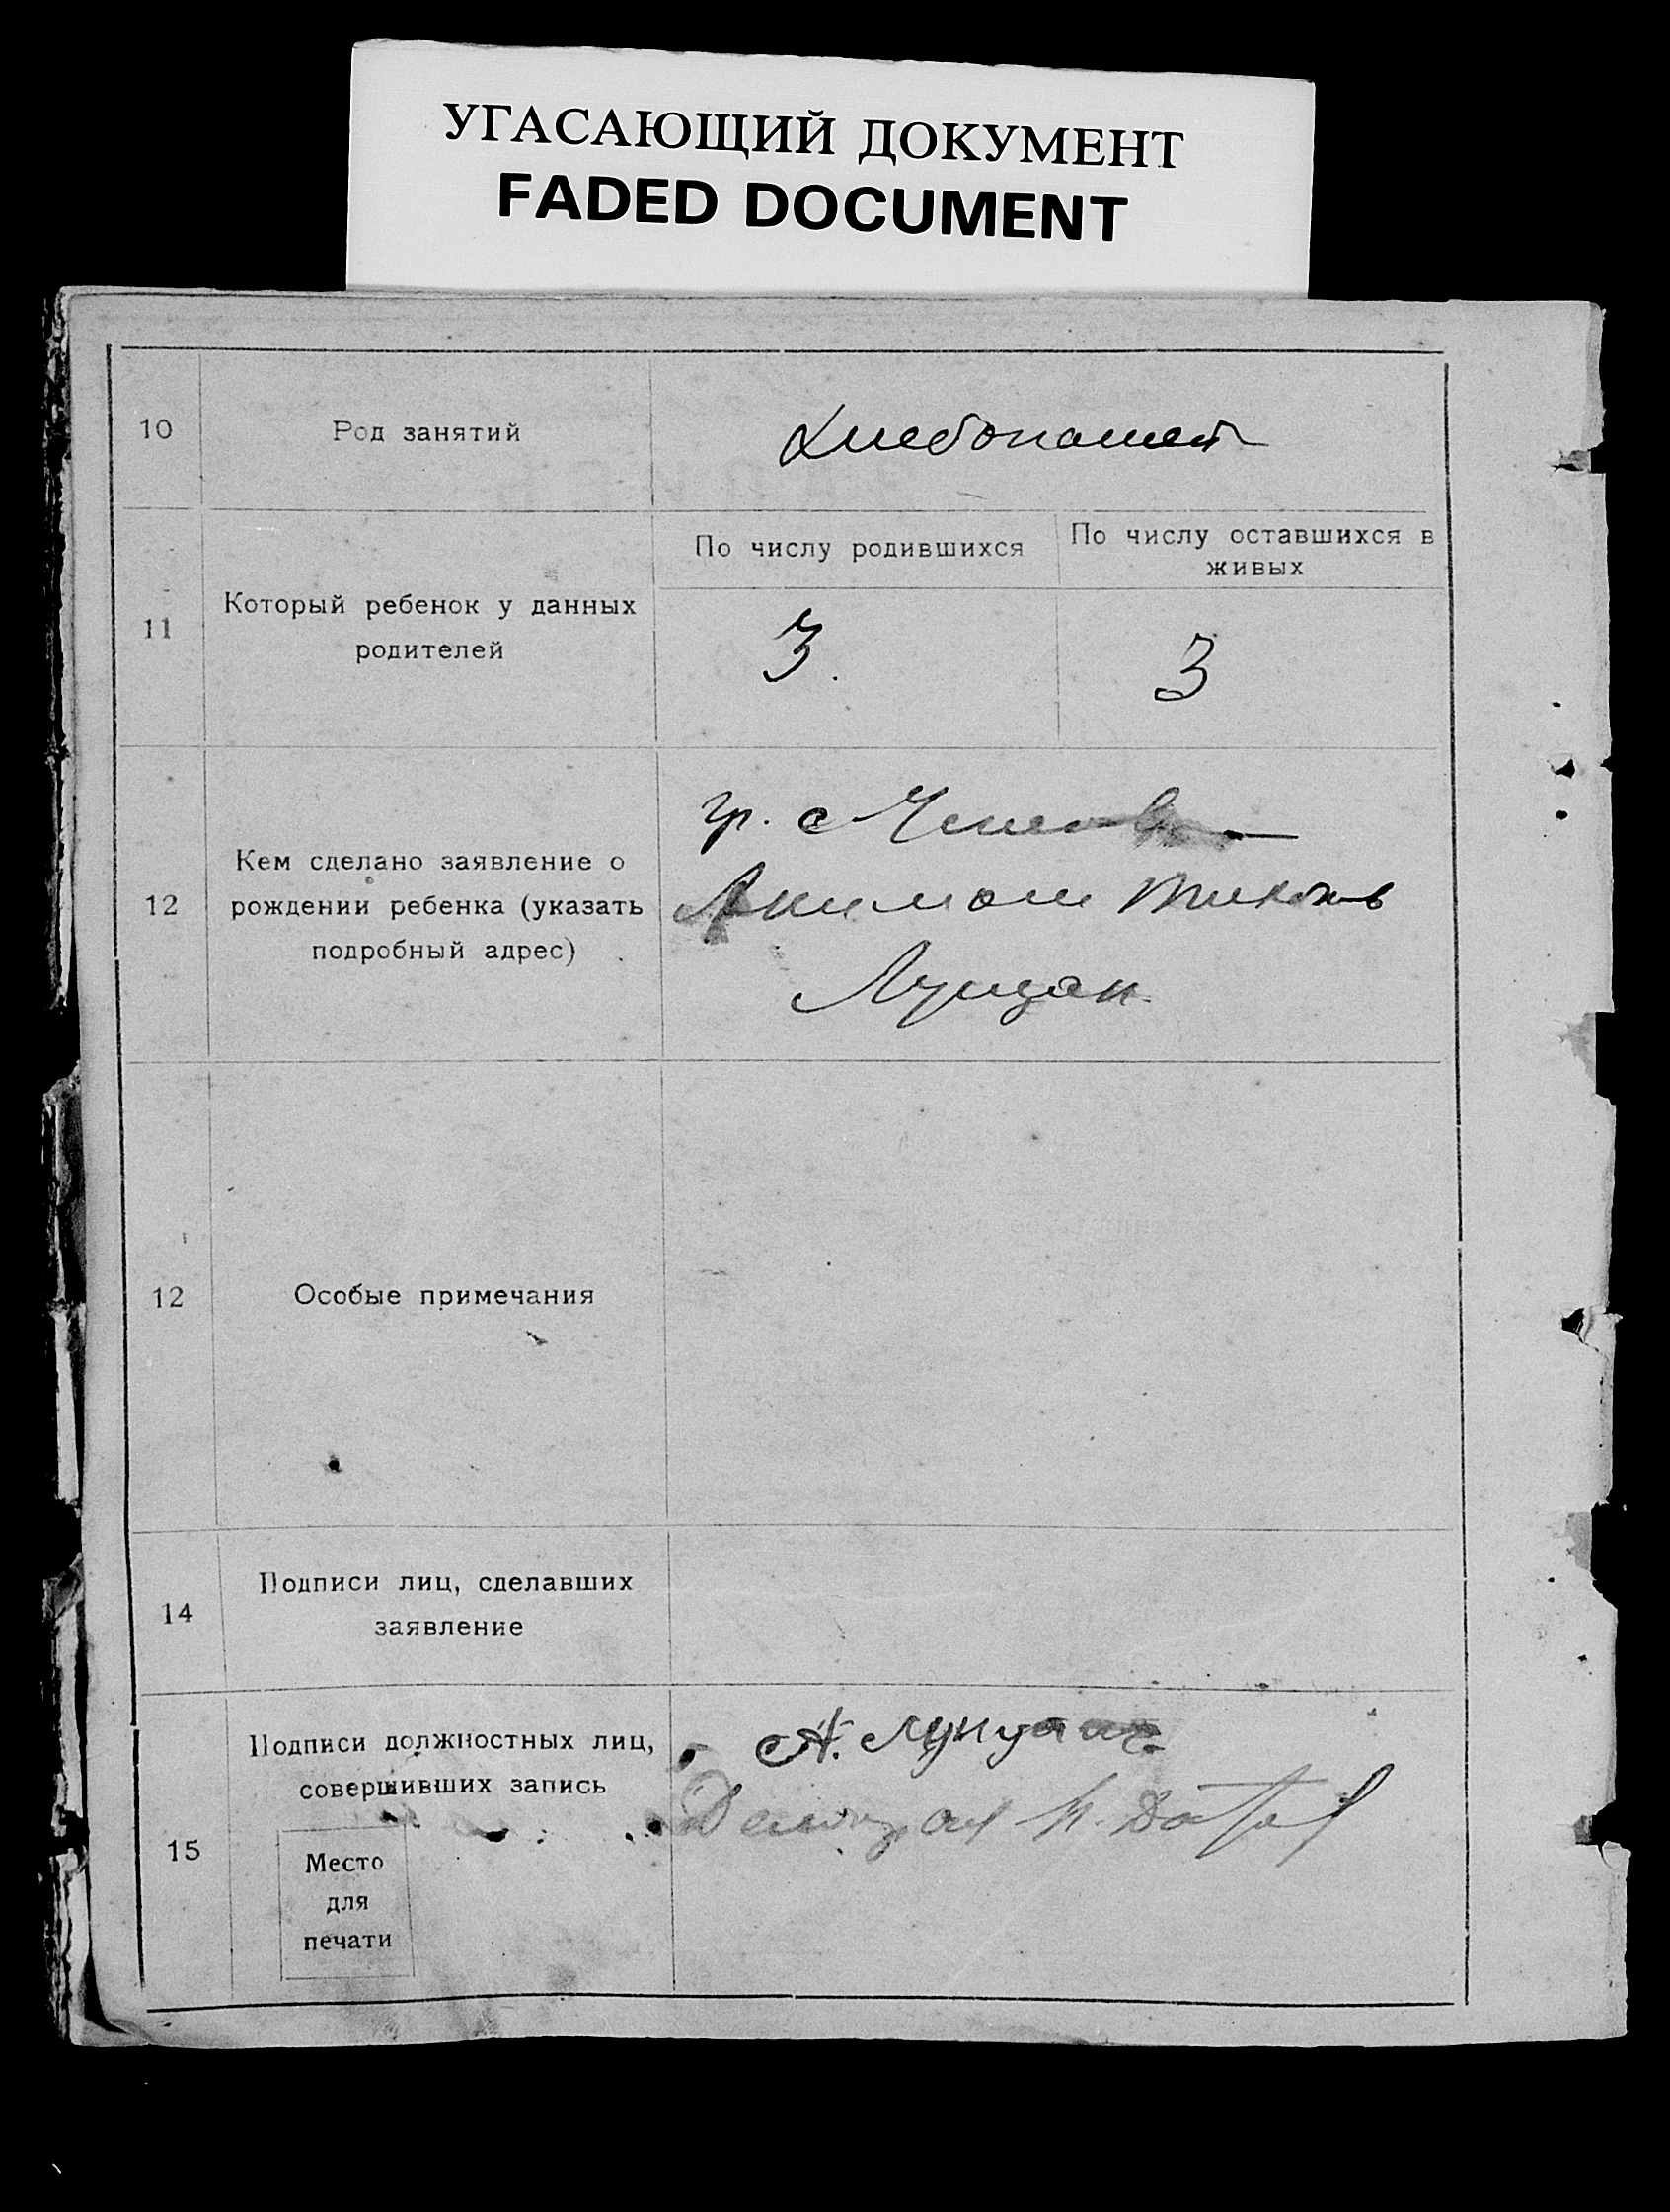 УГАСАЮЩИЙ ДОКУМЕНТ
FADED DOCUMENT
10
Род занятий
Хлебопашест
11
Который ребенок у данных
родителей
По числу родившихся
3.
По числу оставшихся в
живых
3
12
Кем сделано заявление о
рождении ребенка (указать
подробный адрес)
гр. с
Акимом
12
Особые примечания
14
Подписи лиц, сделавших
заявление
15
Подписи должностных лиц,
совершивших запись
Место
для
печати
А.